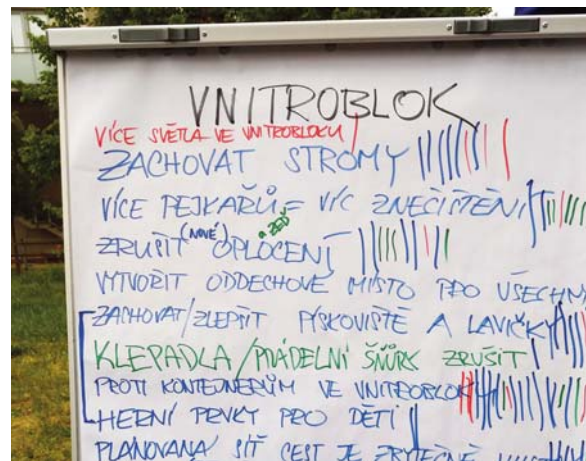 VNITROBLOK
VÍCE SVĚTLA VE VNITROBLOKU
ZACHOVAT STROMY
VÍCE PEJKAŘŮ = VÍC ZNEČIŠTĚNÍ
ZRUŠIT (NOVÉ) OPLOCENÍ a ZEĎ
VYTVOŘIT ODDECHOVÉ MÍSTO PRO VŠECHN
ZACHOVAT/ZLEPŠIT PÍSKOVIŠTĚ A LAVIČKY
KLEPADLA/PRÁDELNÍ ŠŇŮRY ZRUŠIT
PROTI KONTEJNERŮM VE VNITROBLOKU
HERNÍ PRVKY PRO DĚTI
PLÁNOVANÁ SÍŤ CEST JE ZBYTEČNĚ